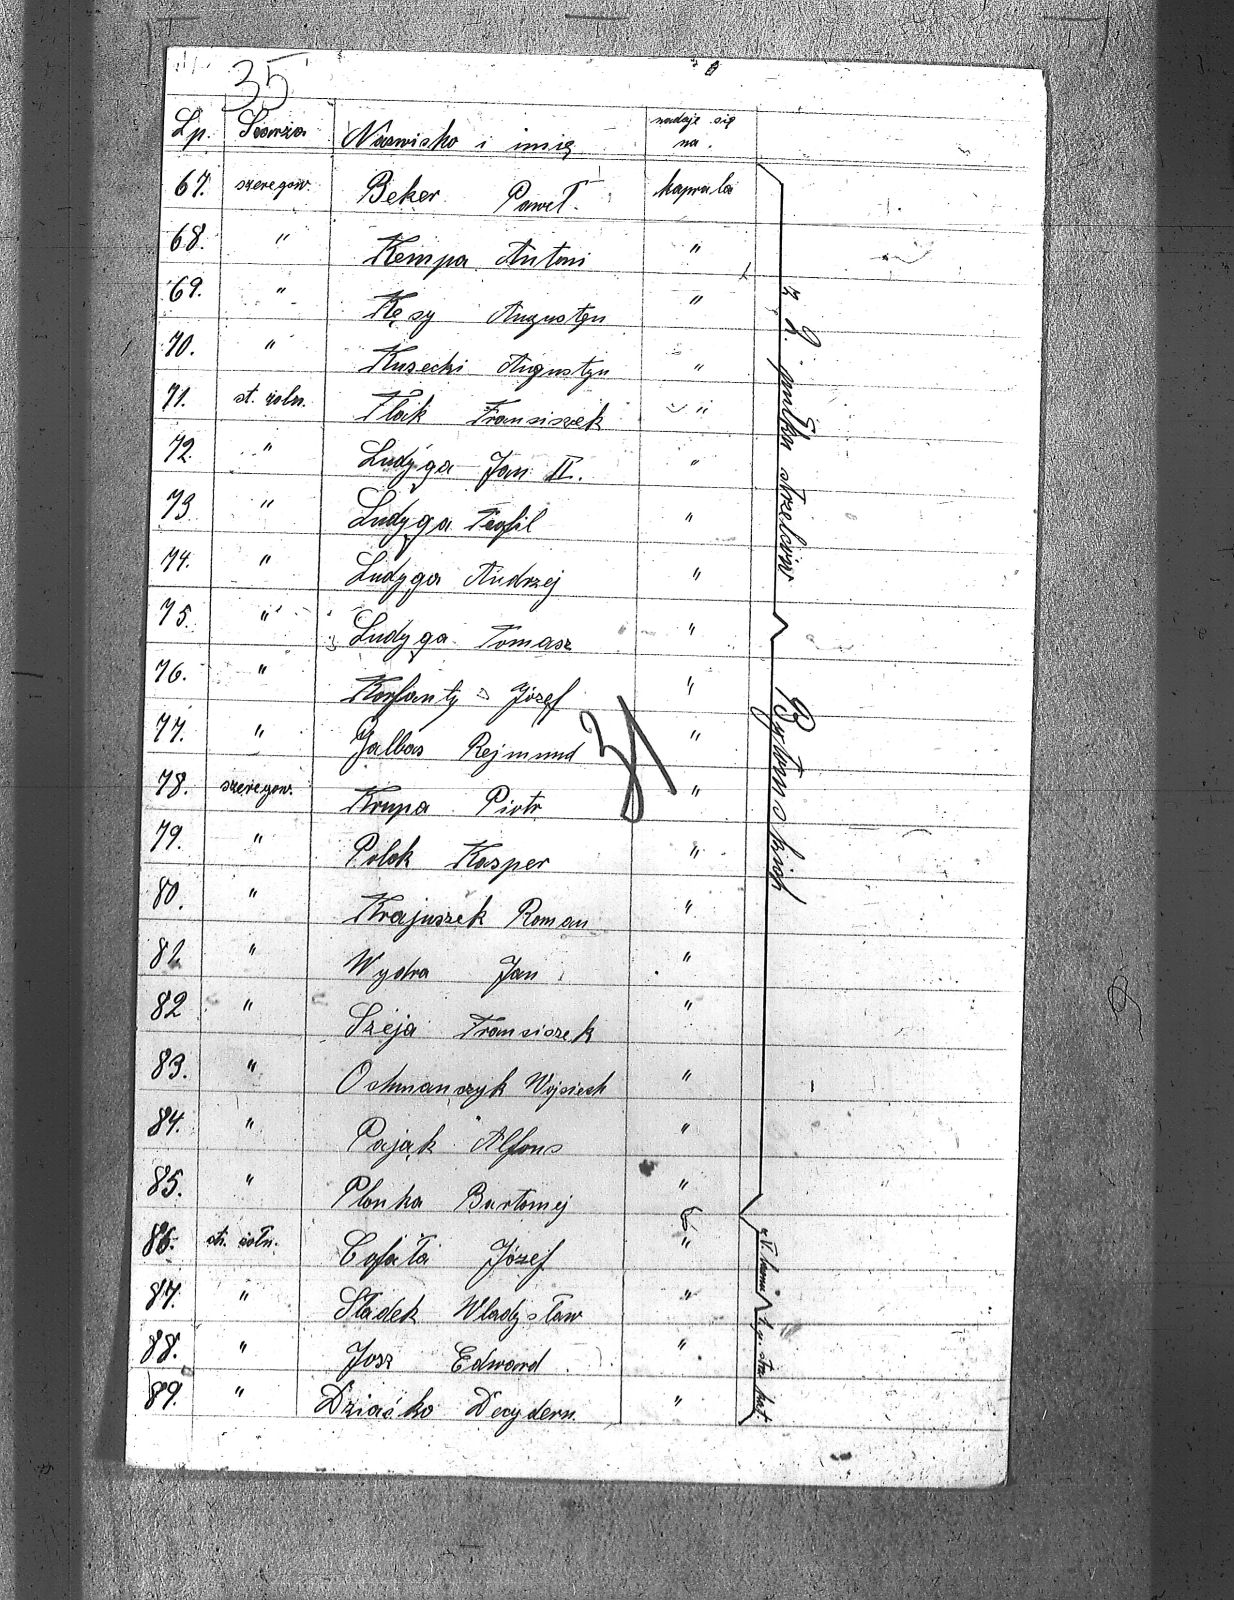 35
Lp. Szarża Nazwisko i imię nadaje się na.
67. szeregow. Beker Paweł. kaprala
68. " Kempa Antoni "
69. " Kęsy Augustyn "
70. " Kusecki Augustyn "
71. st. żołn. Flak Fransiszek "
72. " Ludyga Jan II. "
73 " Ludyga Teofil "
74. " Ludyga Andrzej "
75. " Ludyga Tomasz "
76. " Korfanty Józef "
77. " Jallas Rejmund "
78. szeregow. Krupa Piotr "
79. " Polok Kasper "
80. " Krajuszek Roman "
81. " Wydra Jan "
82 " Szeja Fransiszek "
83. " Ochmanszyk Wojsiech "
84. " Pająk Alfons "
85. " Plonka Bartomej "
86. st. żołn. Cofała Józef "
87. " Sładek Wladysław "
88. " Josz Edward "
89. " Dziaćko Dezydern. "
z 2. pułku strzelców
Bytomskich